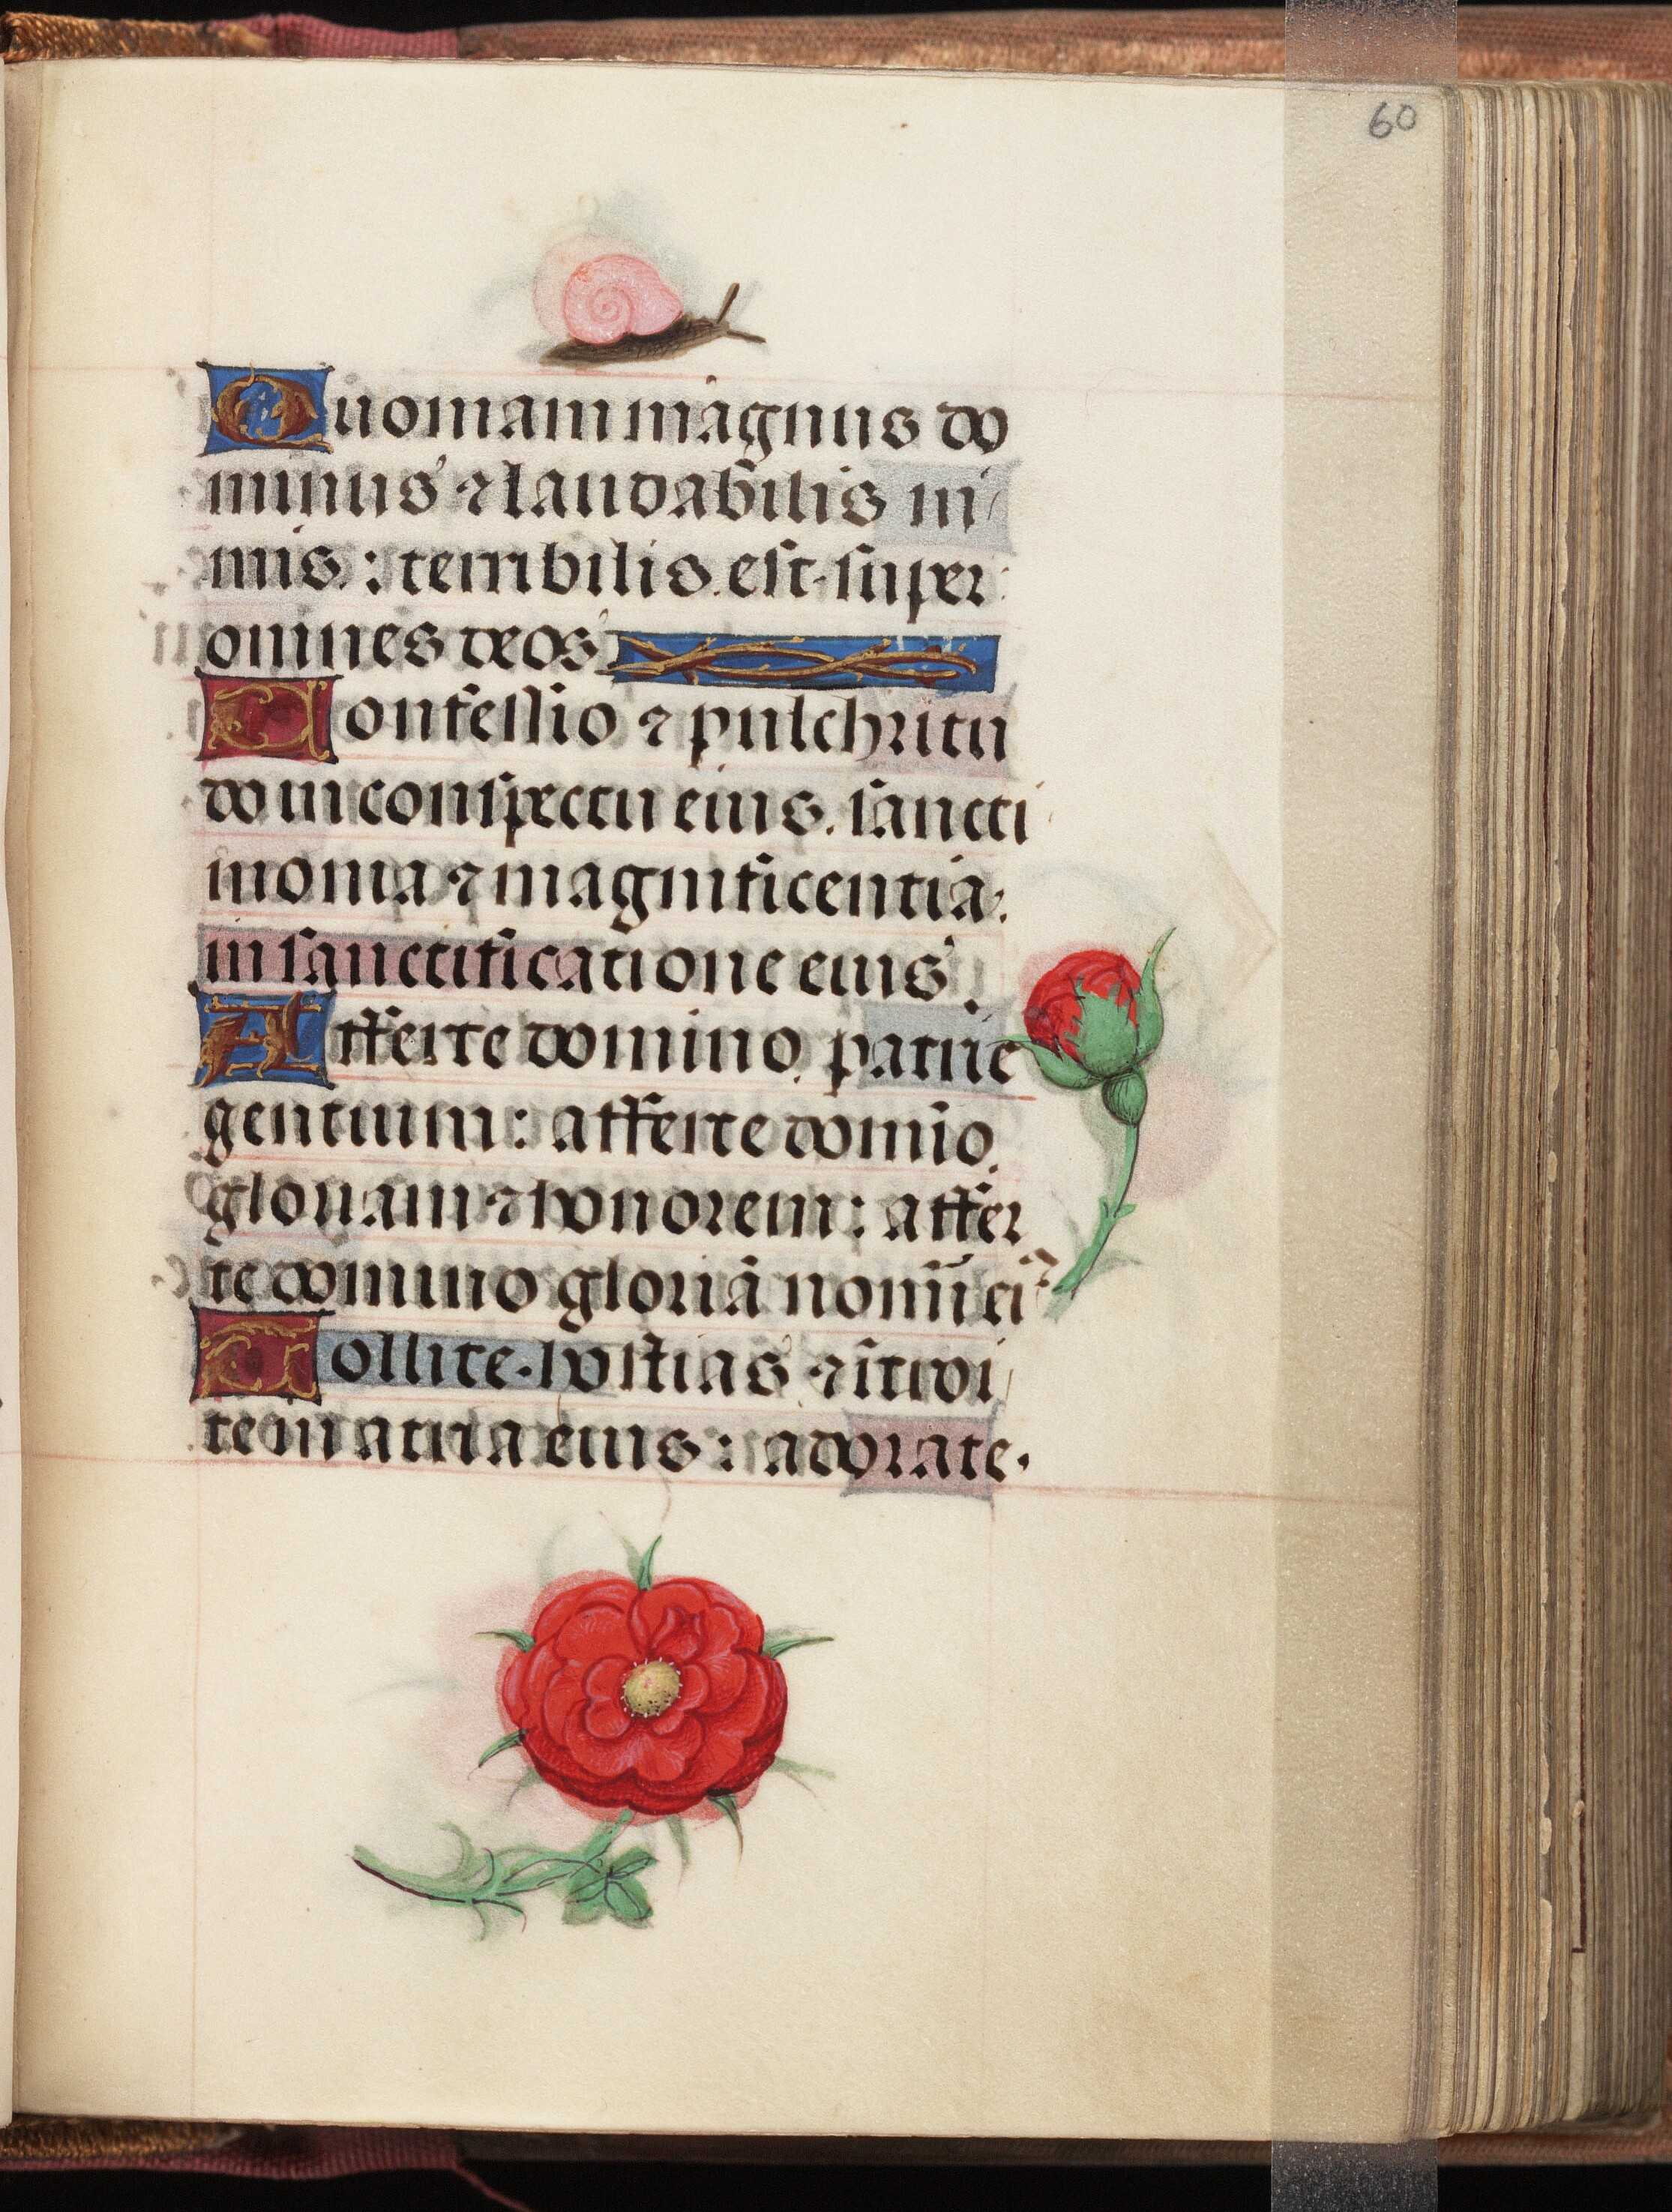 60
Quoniam magnus do
minus ⁊ laudabilis ni
mis: terribilis est super
omnes deos
Confessio ⁊ pulchritu
do in conspectu eius. sancti
monia ⁊ magnificentia.
in sanctificatione eius
Afferte domino patrie
gentium: afferte domīo
gloriam ⁊ honorem: affer
te domino gloriā nomīi ei᷒
Tollite hostias ⁊ itroi
te in atria eius: adorate